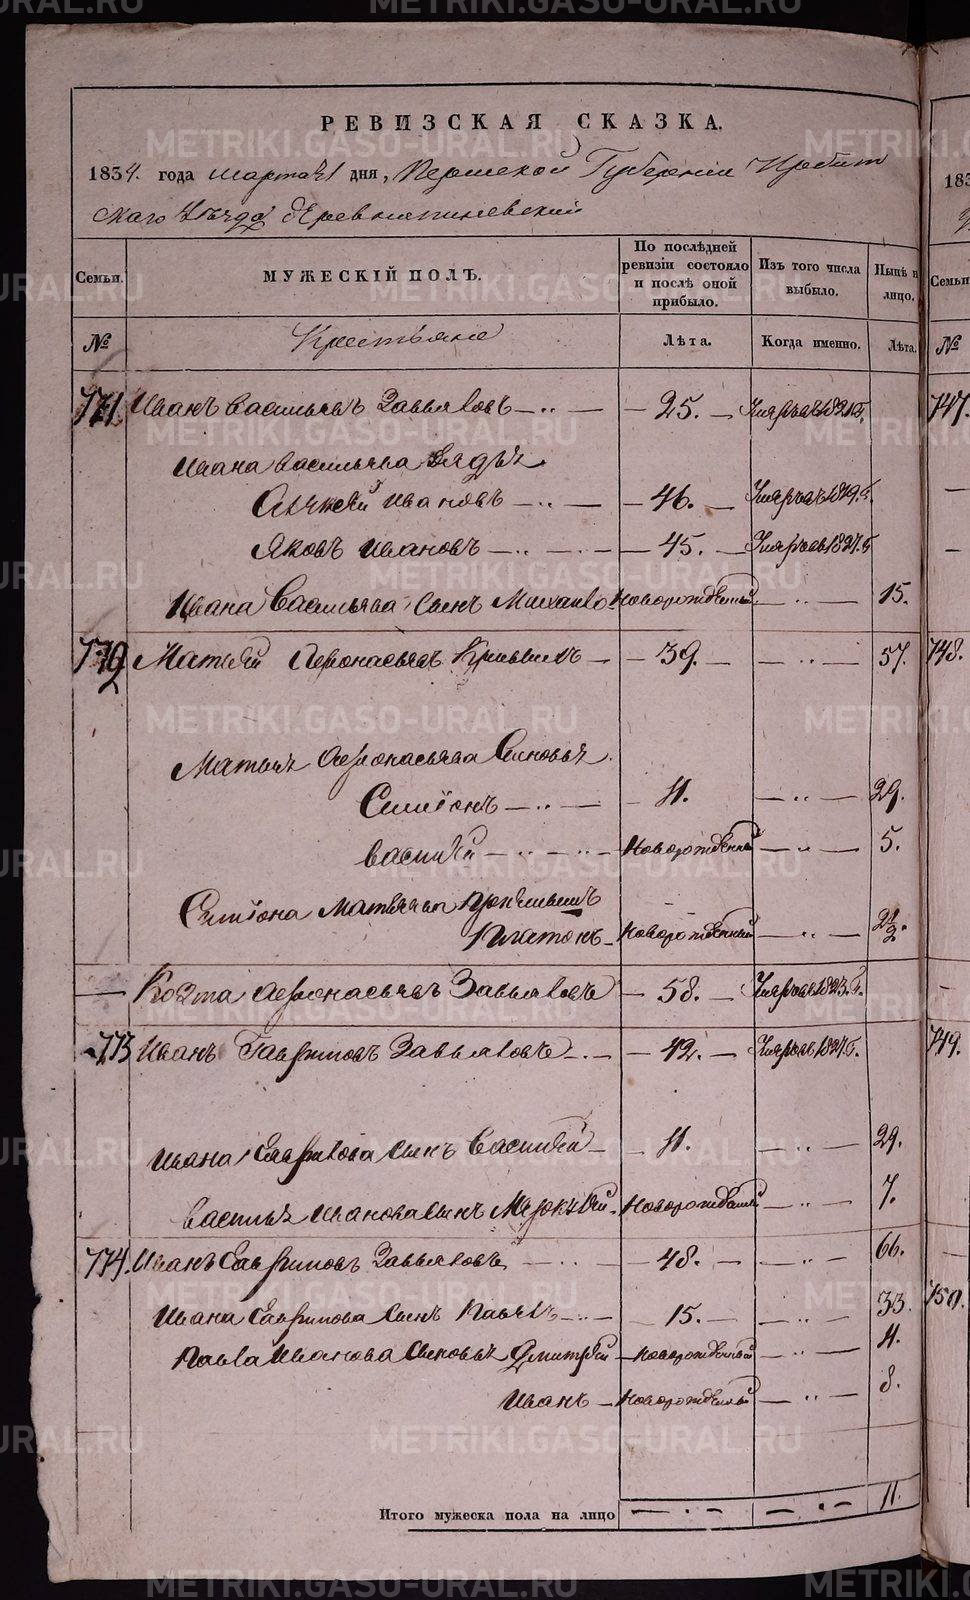 METRIKI.GASO-URAL.RU
РЕВИЗСКАЯ СКАЗКА.
1834. года марта 1 дня, Пермской Губернии Ирбит
скаго Уѣзда деревни
Семьи. МУЖЕСКІЙ ПОЛЪ. По послѣдней ревизіи состояло и послѣ оной прибыло. Изъ того числа выбыло. Нынѣ н лицо. Семьи
№ Крестьяне Лѣта. Когда именно. Лѣта. №
771. Иванъ Васильевъ Завьяловъ 25. Умеръ въ 1821 г. 747.
Ивана Васильева дядья
Алексей Ивановъ 46. Умеръ въ 1819. г.
Яковъ Ивановъ 45. Умеръ въ 1827. г.
Ивана Васильева сынъ Михаило Новорожденный 15.
772 Матвей Афонасьевъ 39. 57. 748.
Матвея Афонасьева Сыновья
Симіонъ 11. 29.
Василей Новорожденный 5.
Симіона Матвеева
Платонъ Новорожденный 2 1/2.
Козма Афонасьевъ Завьяловъ 58. Умеръ въ 1823. г.
773 Иванъ Гавриловъ Завьяловъ 42. Умеръ въ 1827. г. 749.
Ивана Гаврилова сынъ Василей 11. 29.
Василья Иванова сынъ Меркурей Новорожденный 7.
774. Иванъ Гавриловъ Завьяловъ 48. 66.
Ивана Гаврилова сынъ Павелъ 15. 33. 750.
Павла Иванова Сыновья Дмитрей Новорожденный 11.
Иванъ Новорожденный 8.
Итого мужеска пола на лицо 11.